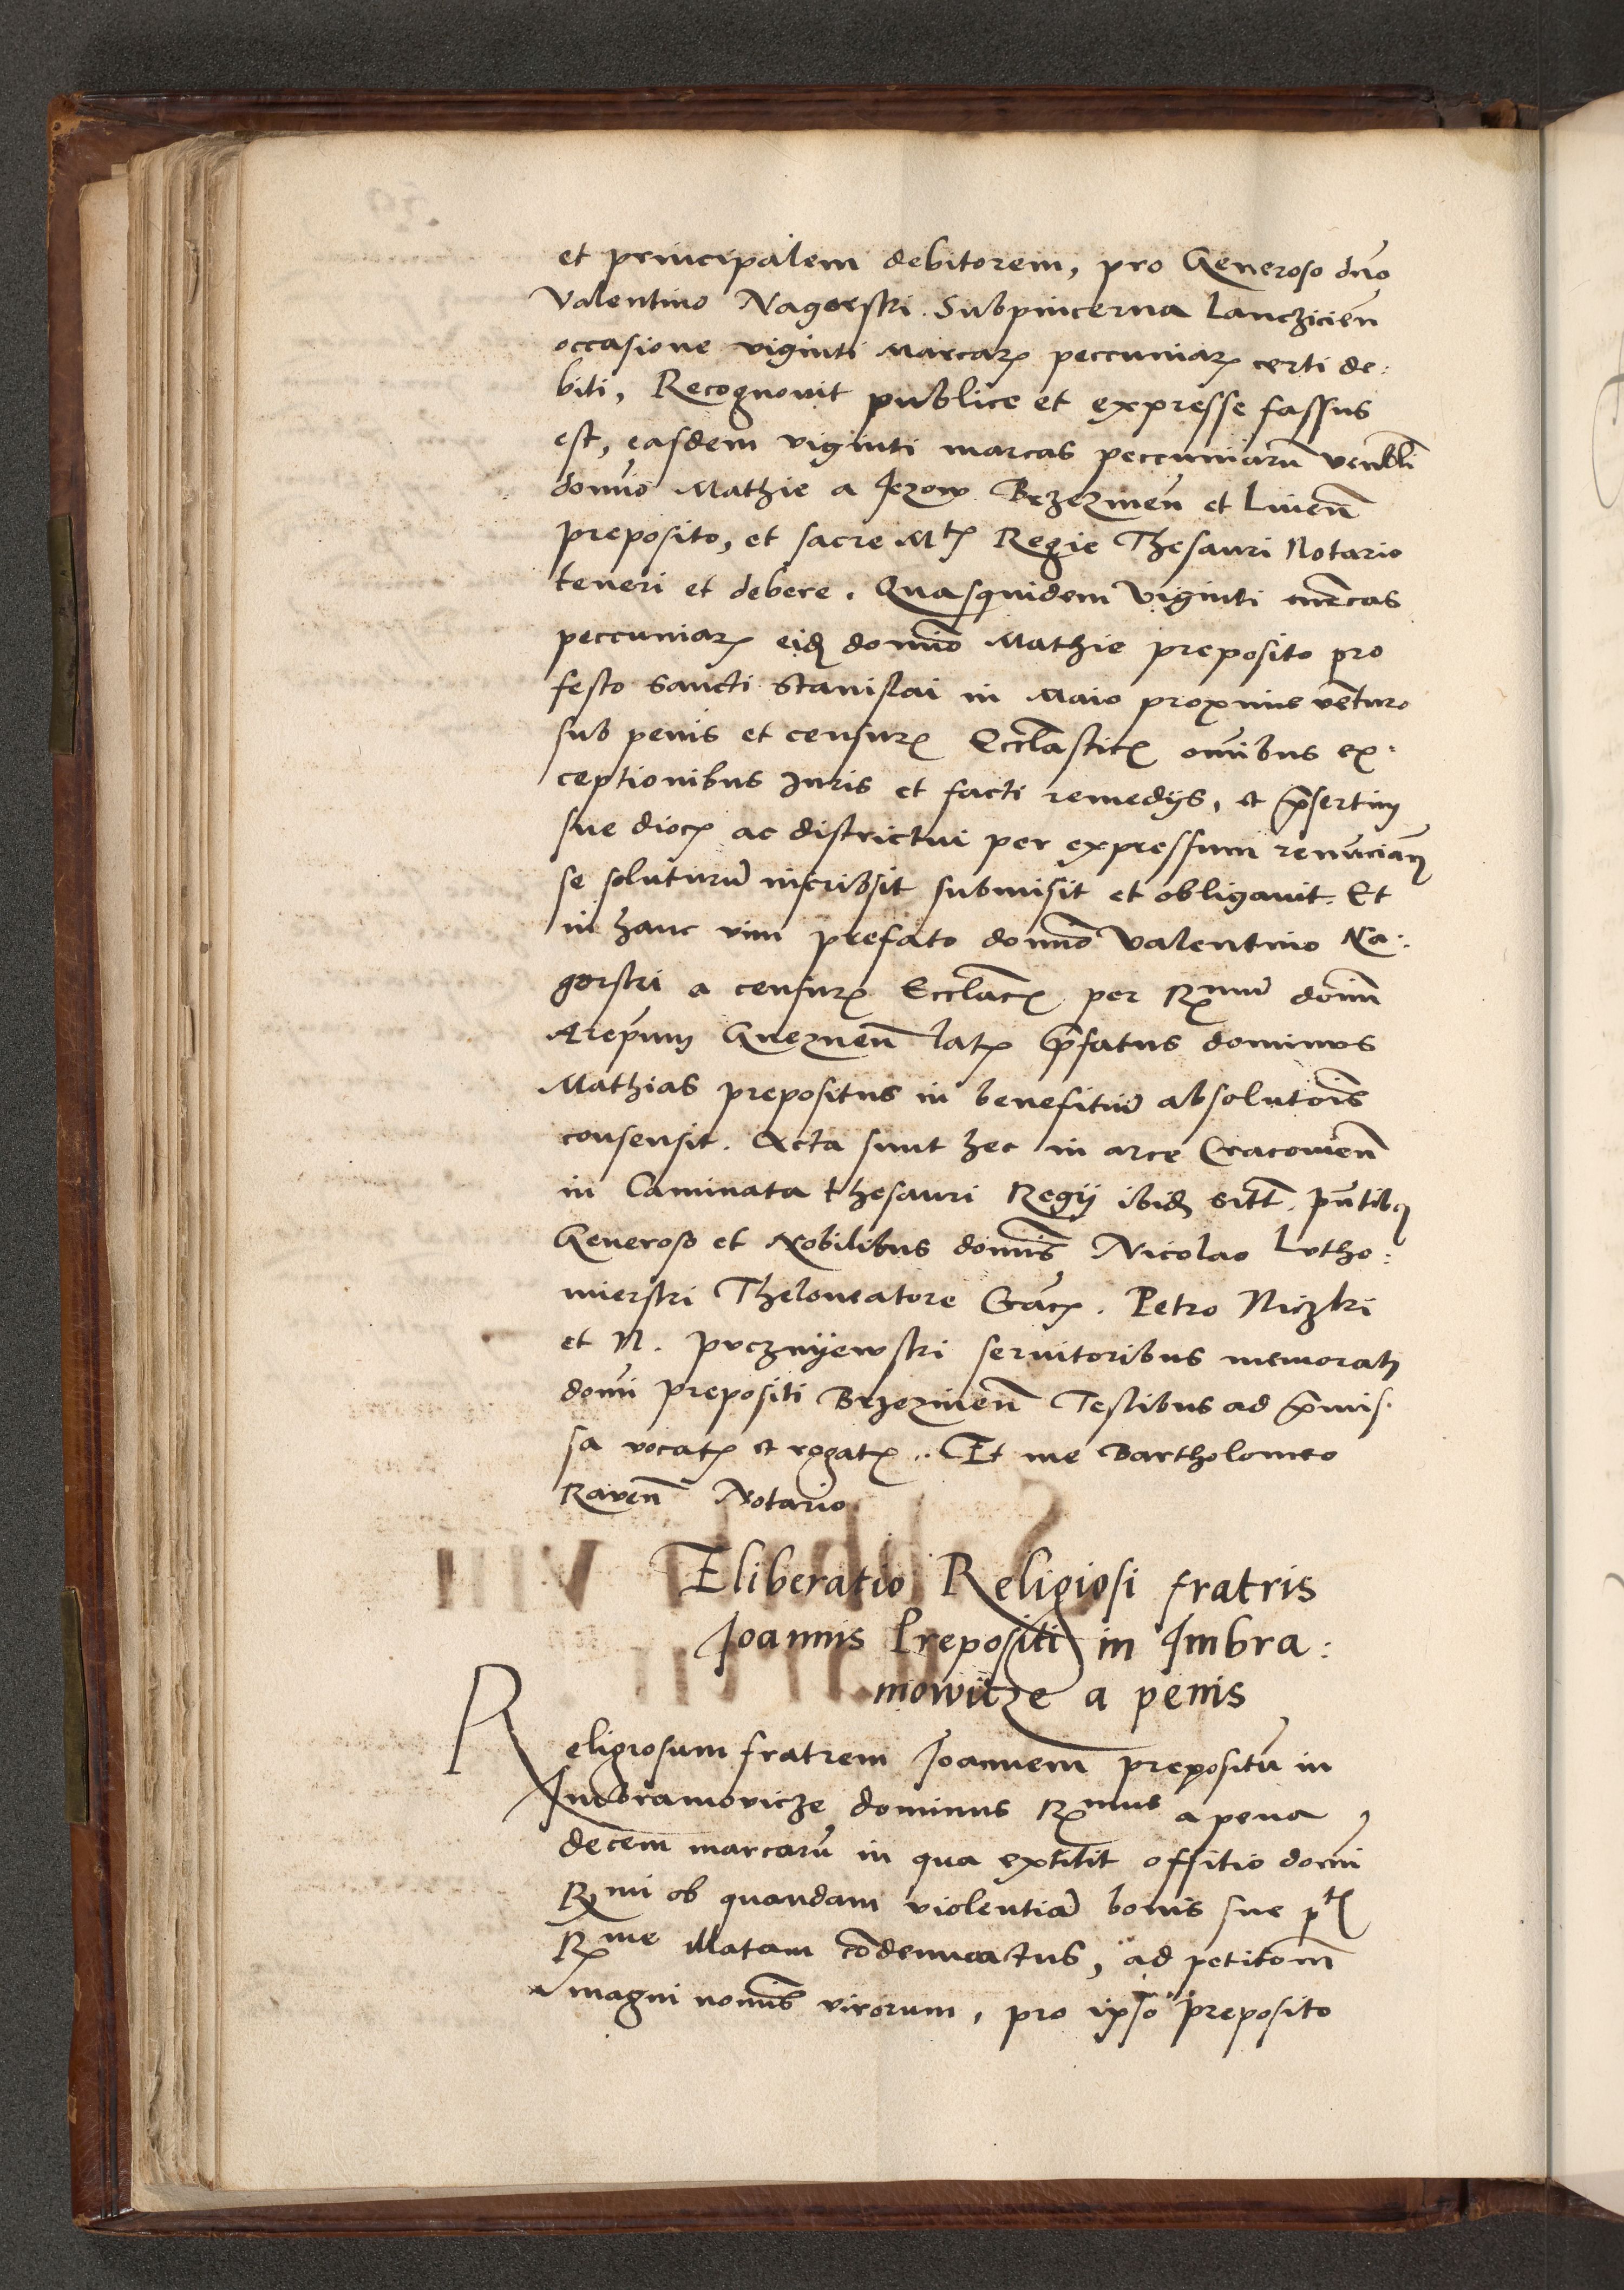 et principalem debitorem, pro Generoso dno
Valentino Nagorski Subpincerna Lanczicien
occasione viginti marcar peccuniar certi de:
biti, Recognovit publice et expresse fassus
est, easdem viginti marcas peccuniaru venbli
domno Mathie a Jezow Brzeznen et Luien
preposito, et sacre Mtis Regie Thesauri Notario
teneri et debere. Quasquidem viginti mrcas
peccuniar eid domno Mathie preposito pro
festo Sancti Stanislai in Maio proxime venturo
sub penis et censur Ecclasticis omnibus ex:
ceptionibus Juris et facti remedijs, et prsertim
sue dioc ac districtui per expressum renuncian
se soluturu inscribsit submisit et obligavit. Et
in hanc vim prefato domno Valentino Na:
gorski a censur Ecclactis per Rmum domin
Arepum Gneznen lat prfatus dominus
Mathias prepositus in benefitiu absolutois
consensit. Acta sunt hec in arce Cracovien
in Caminata thesauri Regij ibid sitt. pntibus
Generoso et Nobilibus domnis Nicolao Lutho:
mierski Theloneatore Grac. Petro Niczki
et N. Pucznyewski servitoribus memorati
domi prepositi Brzeznien Testibus ad prmis:
sa vocat et rogat. Et me Bartholomeo
Raven Notario
Eliberatio Religiosi fratris
Joannis Prepositi in Imbra:
mowicze a penis
Religiosum fratrem Joannem prepositu in
Imbramovicze dominus Rmus a pena
decem marcaru in qua extitit offitio domi
Rmi ob quandam violentia bonis sue ptis
Rme illatam condemnatus, ad petitom
magni nomis virorum, pro ipso preposito